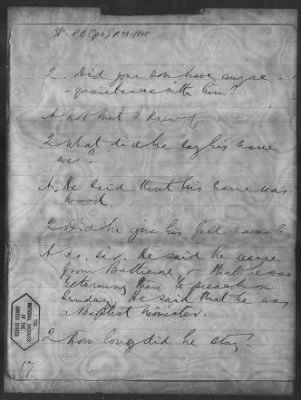 Q. Did your son have any ac-
-quaintance with him?
A. Not that I knew of.
Q. What did he say his name
was?
A. He said that his name was
Wood.
Q. Did he give his full name?
A. No, Sir. He said he came
from Baltimore, & that he was
returning there to preach on
Sunday. He said that he was
a Baptist Minister.
Q. How long did he stay?
THE
NATIONAL ARCHIVES
OF THE
UNITED STATES